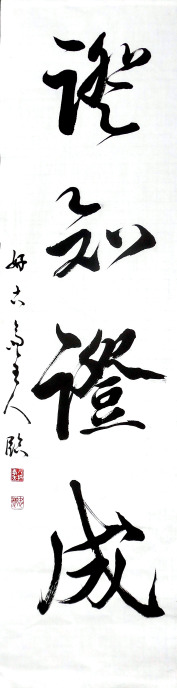 證知證成
好古主人臨